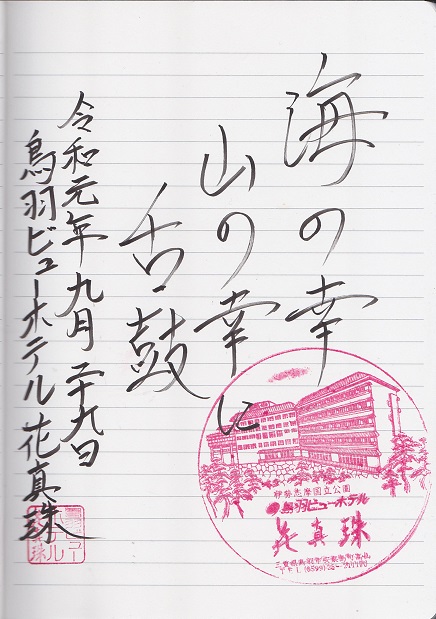 海の幸
山の幸に
舌鼓
令和元年九月二十九日
鳥羽ビューホテル花真珠
伊勢志摩国立公園
鳥羽ビューホテル
花真珠